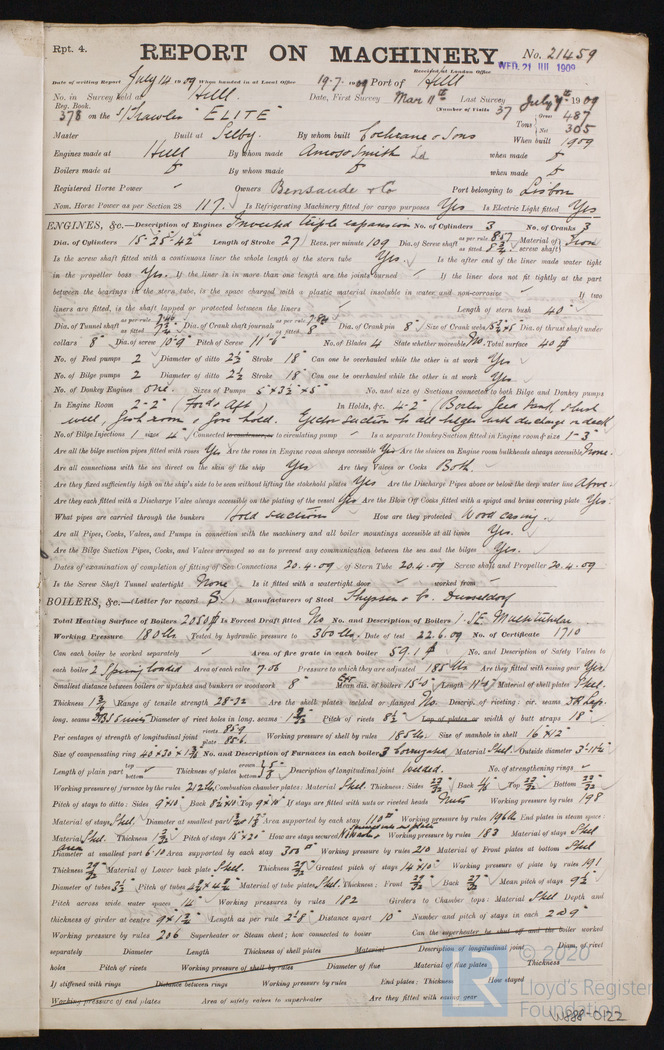 Rpt. 4.
REPORT ON MACHINERY
No. 21459
Received at London Office
WED. 21 JUL 1909
Date of writing Report July 14 1909 When handed in at Local Office 19.7.1909 Port of Hull
No. in Survey held at Hull. Date, First Survey Mar 11th Last Survey July 9th 1909
Reg. Book. (Number of Visits 37
378 on the S/Trawler "ELITE" Tons Gross 487 Net 305
Master Built at Selby. By whom built Cochrane & Sons When built 1909
Engines made at Hull By whom made Amos & Smith Ld when made
Boilers made at By whom made when made
Registered Horse Power Owners Bensaude & Co Port belonging to Lisbon
Nom. Horse Power as per Section 28 117. Is Refrigerating Machinery fitted for cargo purposes Yes Is Electric Light fitted Yes
ENGINES, &c.—Description of Engines Inverted triple expansion No. of Cylinders 3 No. of Cranks 3
Dia. of Cylinders 15"-25"-42" Length of Stroke 27 Revs. per minute 109 Dia. of Screw shaft as per rule 8.57 as fitted Material of screw shaft Iron
Is the screw shaft fitted with a continuous liner the whole length of the stern tube Yes. Is the after end of the liner made water tight
in the propeller boss Yes. If the liner is in more than one length are the joints burned If the liner does not fit tightly at the part
between the bearings in the stern tube, is the space charged with a plastic material insoluble in water and non-corrosive If two
liners are fitted, is the shaft lapped or protected between the liners Length of stern bush 40"
Dia. of Tunnel shaft as per rule as fitted Dia. of Crank shaft journals as per rule as fitted 8" Dia. of Crank pin 8" Size of Crank webs Dia. of thrust shaft under
collars 8" Dia. of screw 10'-9" Pitch of Screw 11'-6" No. of Blades 4 State whether moveable No. Total surface 40
No. of Feed pumps 2 Diameter of ditto 2½ Stroke 18" Can one be overhauled while the other is at work Yes
No. of Bilge pumps 2 Diameter of ditto 2½ Stroke 18" Can one be overhauled while the other is at work Yes.
No. of Donkey Engines One. Sizes of Pumps 5" x 3½" x 5" No. and size of Suctions connected to both Bilge and Donkey pumps
In Engine Room 2-2" (Ford & Aft) In Holds, &c. 4-2" (Boiler feed tank, slush
well, fish room & fore hold. Ejector suction to all bilges with discharge on deck
No. of Bilge Injections 1 sizes 4" Connected to condenser, or to circulating pump Is a separate Donkey Suction fitted in Engine room & size 1-3"
Are all the bilge suction pipes fitted with roses Yes Are the roses in Engine room always accessible Yes Are the sluices on Engine room bulkheads always accessible None.
Are all connections with the sea direct on the skin of the ship Yes Are they Valves or Cocks Both.
Are they fixed sufficiently high on the ship's side to be seen without lifting the stokehold plates Yes Are the Discharge Pipes above or below the deep water line Above.
Are they each fitted with a Discharge Valve always accessible on the plating of the vessel Yes Are the Blow Off Cocks fitted with a spigot and brass covering plate Yes.
What pipes are carried through the bunkers Hold suctions How are they protected Wood casing.
Are all Pipes, Cocks, Valves, and Pumps in connection with the machinery and all boiler mountings accessible at all times Yes.
Are the Bilge Suction Pipes, Cocks, and Valves arranged so as to prevent any communication between the sea and the bilges Yes.
Dates of examination of completion of fitting of Sea Connections 20.4.09 of Stern Tube 20.4.09 Screw shaft and Propeller 20.4.09
Is the Screw Shaft Tunnel watertight None Is it fitted with a watertight door worked from
BOILERS, &c.—(Letter for record S.) Manufacturers of Steel Thyssen & Co. Dusseldorf
Total Heating Surface of Boilers 2050 Is Forced Draft fitted No No. and Description of Boilers 1-SE Multitubular
Working Pressure 180 lbs. Tested by hydraulic pressure to 360 lbs. Date of test 22.6.09 No. of Certificate 1710
Can each boiler be worked separately Area of fire grate in each boiler 59.1 No. and Description of Safety Valves to
each boiler 2 Spring loaded Area of each valve 7.06 Pressure to which they are adjusted 185 lbs Are they fitted with easing gear Yes.
Smallest distance between boilers or uptakes and bunkers or woodwork 8" Mean dia. of boilers 15'-0" Length Material of shell plates Steel.
Thickness Range of tensile strength 28-32 Are the shell plates welded or flanged No. Descrip. of riveting: cir. seams DR Lap.
long. seams Diameter of rivet holes in long. seams Pitch of rivets 8½" Lap of plates or width of butt straps 18"
Per centages of strength of longitudinal joint rivets 85.9 plate 85.6. Working pressure of shell by rules 185 lbs. Size of manhole in shell 16"x12"
Size of compensating ring No. and Description of Furnaces in each boiler 3 Corrugated Material Steel Outside diameter
Length of plain part top bottom Thickness of plates crown bottom Description of longitudinal joint Welded. No. of strengthening rings
Working pressure of furnace by the rules 212 lbs Combustion chamber plates: Material Steel Thickness: Sides Back Top Bottom
Pitch of stays to ditto: Sides 9"x10" Back Top 9"x10" If stays are fitted with nuts or riveted heads Nuts Working pressure by rules 198
Material of stays Steel. Diameter at smallest part Area supported by each stay 110 Working pressure by rules 196 lb End plates in steam space:
Material Steel. Thickness Pitch of stays How are stays secured Working pressure by rules 183 Material of stays Steel
Area
Diameter at smallest part 6.10 Area supported by each stay 300 Working pressure by rules 210 Material of Front plates at bottom Steel
Thickness Material of Lower back plate Steel. Thickness Greatest pitch of stays 14"x10" Working pressure of plate by rules 191
Diameter of tubes 3½ Pitch of tubes Material of tube plates Steel. Thickness: Front Back Mean pitch of stays 9½"
Pitch across wide water spaces 14" Working pressures by rules 182 Girders to Chamber tops: Material Steel Depth and
thickness of girder at centre Length as per rule Distance apart 10" Number and pitch of stays in each 2 @ 9"
Working pressure by rules 206 Superheater or Steam chest; how connected to boiler Can the superheater be shut off and the boiler worked
separately Diameter Length Thickness of shell plates Material Description of longitudinal joint Diam. of rivet
holes Pitch of rivets Working pressure of shell by rules Diameter of flue Material of flue plates Thickness
If stiffened with rings Distance between rings Working pressure by rules End plates: Thickness How stayed
Working pressure of end plates Area of safety valves to superheater Are they fitted with easing gear
© 2020
Lloyd's Register
Foundation
W888-0122